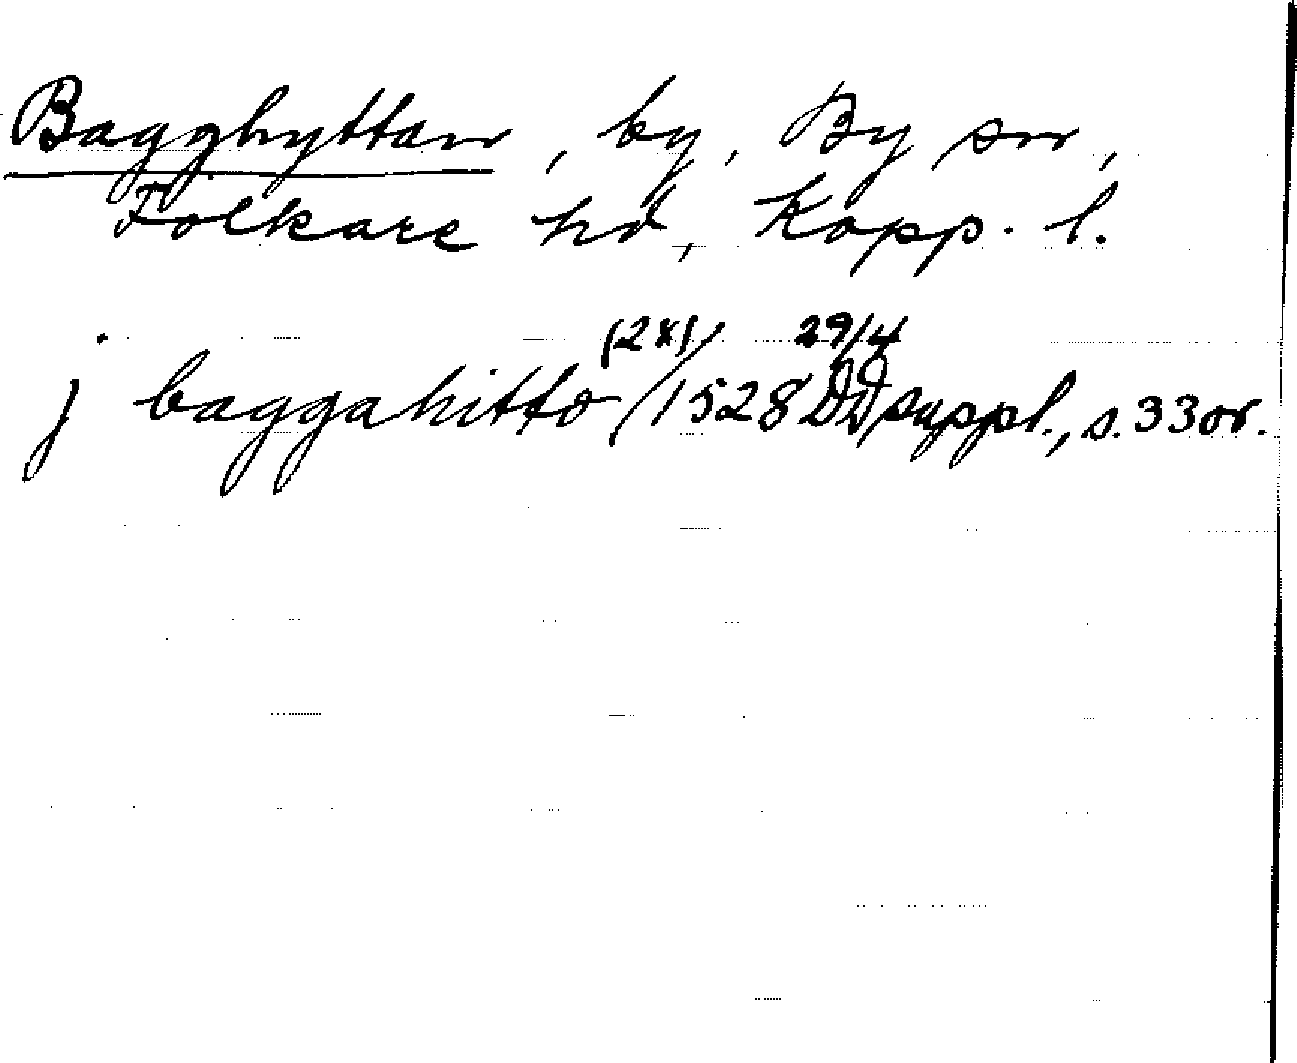 Bagghyttan, by, By sn,
Folkare hd, Kopp. l.
j baggahitto (2x) / 1528 29/4 DD suppl., s. 33 or.